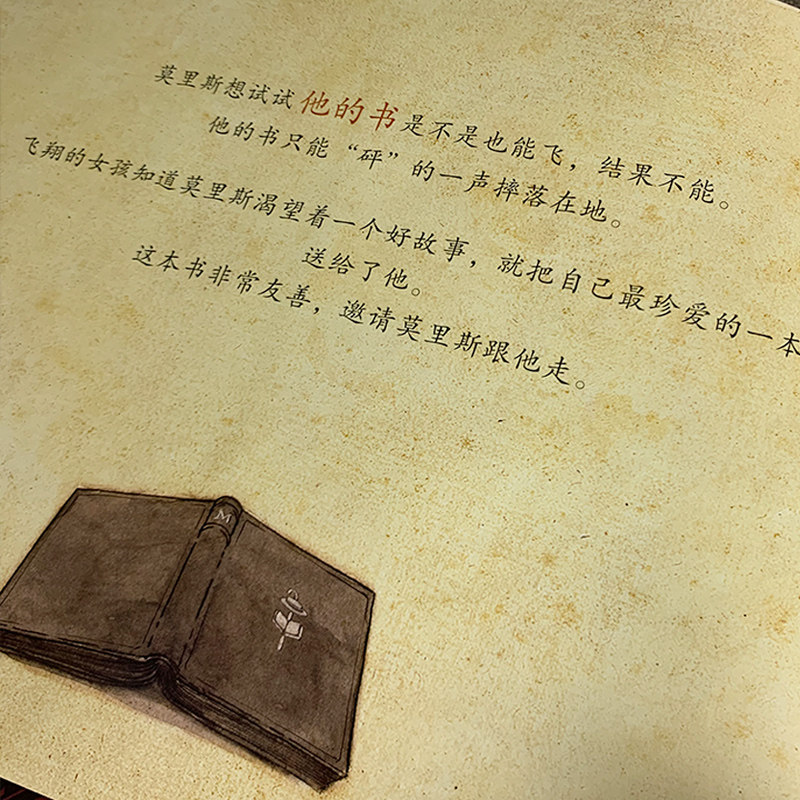 莫里斯想试试他的书是不是也能飞，结果不能。
他的书只能“砰”的一声摔落在地。
飞翔的女孩知道莫里斯渴望着一个好故事，就把自己最珍爱的一本
送给了他。
这本书非常友善，邀请莫里斯跟他走。
M